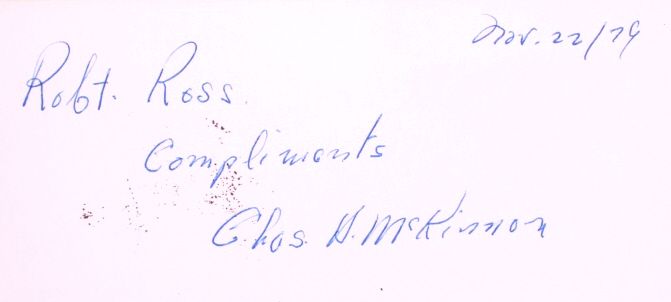 Nov. 22/79
Robt. Ross.
Compliments
Chas. H. McKinnon